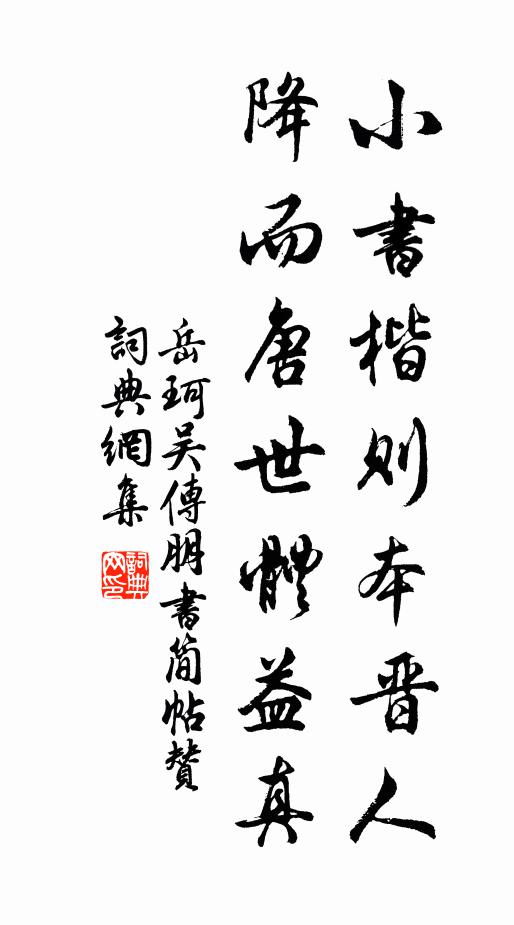 小書楷則本晋人
降而唐世體益真
岳珂吴傅朋書简帖贊
詞典網集
詞典網印